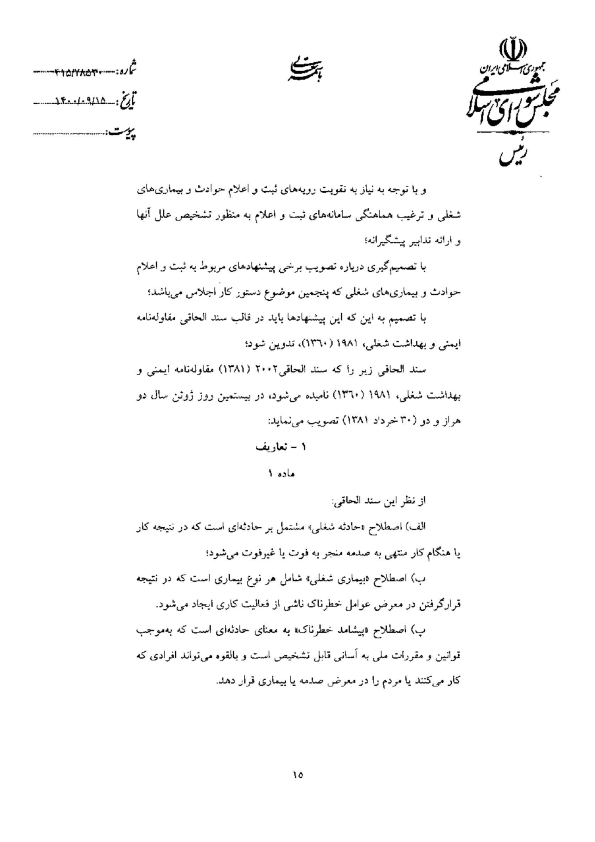 جمهوری اسلامی ایران
مجلس شورای اسلامی
رئیس
باسمه تعالی
شماره: ۴۱۵/۷۸۵۳۰
تاریخ: ۱۴۰۰/۰۹/۱۵
پیوست:
و با توجه به نیاز به تقویت رویه‌های ثبت و اعلام حوادث و بیماری‌های
شغلی و ترغیب هماهنگی سامانه‌های ثبت و اعلام به منظور تشخیص علل آنها
و ارائه تدابیر پیشگیرانه؛
با تصمیم‌گیری درباره تصویب برخی پیشنهادهای مربوط به ثبت و اعلام
حوادث و بیماری‌های شغلی که پنجمین موضوع دستور کار اجلاس می‌باشد؛
با تصمیم به این که این پیشنهادها باید در قالب سند الحاقی مقاوله‌نامه
ایمنی و بهداشت شغلی، ۱۹۸۱ (۱۳۶۰)، تدوین شود؛
سند الحاقی زیر را که سند الحاقی۲۰۰۲ (۱۳۸۱) مقاوله‌نامه ایمنی و
بهداشت شغلی، ۱۹۸۱ (۱۳۶۰) نامیده می‌شود، در بیستمین روز ژوئن سال دو
هزار و دو (۳۰ خرداد ۱۳۸۱) تصویب می‌نماید:
۱ - تعاریف
ماده ۱
از نظر این سند الحاقی:
الف) اصطلاح «حادثه شغلی» مشتمل بر حادثه‌ای است که در نتیجه کار
یا هنگام کار منتهی به صدمه منجر به فوت یا غیرفوت می‌شود؛
ب) اصطلاح «بیماری شغلی» شامل هر نوع بیماری است که در نتیجه
قرارگرفتن در معرض عوامل خطرناک ناشی از فعالیت کاری ایجاد می‌شود.
پ) اصطلاح «پیشامد خطرناک» به معنای حادثه‌ای است که به‌موجب
قوانین و مقررات ملی به آسانی قابل تشخیص است و بالقوه می‌تواند افرادی که
کار می‌کنند یا مردم را در معرض صدمه یا بیماری قرار دهد.
۱۵